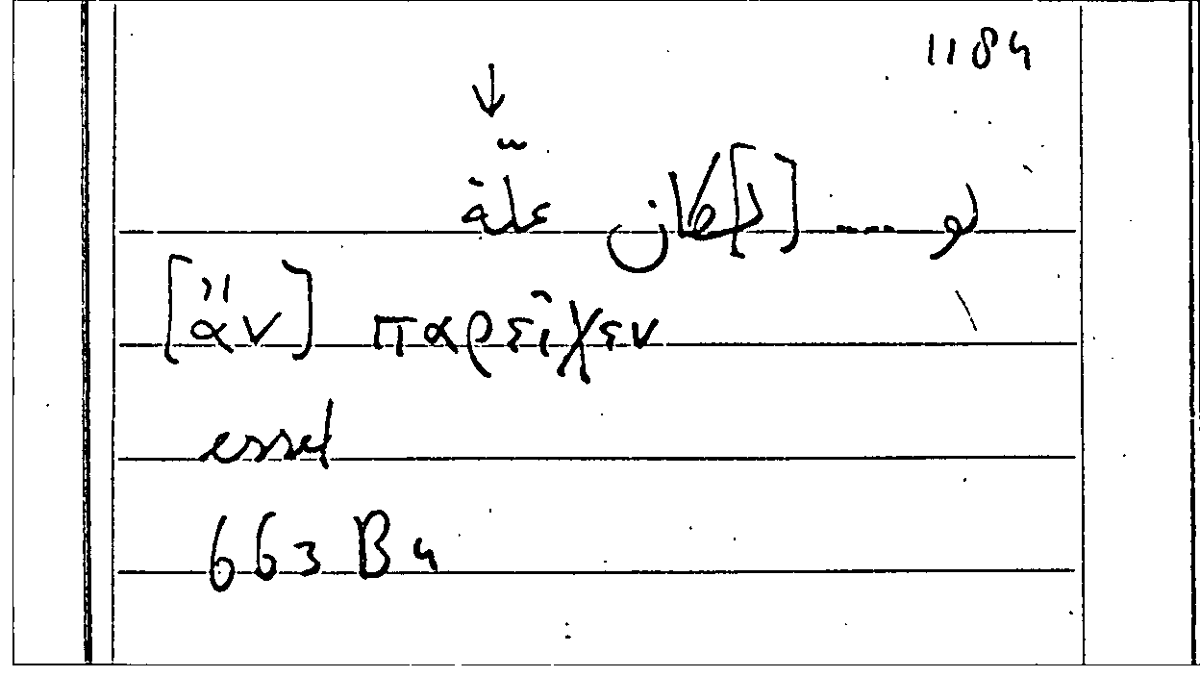 1184
↓
لو .... [ل]كان علة
[ἄν] παρεῖχεν
esset
663 B 4